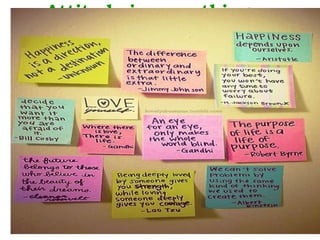 Happiness
is a direction,
not a destination
-unknown
The difference
between
ordinary and
extraordinary
is that little
extra.
-Jimmy Johnson
HAPPINESS
depends upon
ourselves.
-Aristotle
If you're doing
your best,
you won't have
any time to
worry about
failure.
-H. Jackson Brown, Jr.
decide
that you
want it
more than
you are
afraid of
it.
-Bill Cosby
LOVE
Where there
is love,
There is
life.
-Gandhi
An eye
for an eye,
only makes
the whole
world blind.
-Gandhi
The purpose
of life is a
life of
purpose.
-Robert Byrne
the future
belongs to those
who believe in
the beauty of
their dreams.
Being deeply loved
by someone gives
you strength,
while loving
someone deeply
gives you courage.
-Lao Tzu
We can't solve
problems by
using the same
kind of thinking
we used to
create them.
-Albert
Einstein